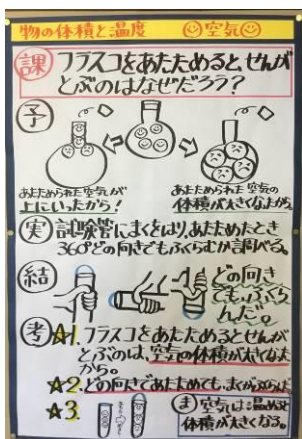 物の体積と温度 空気
課 フラスコをあたためると、せんが
とぶのはなぜだろう?
予
あたためられた空気が
上にいったから!
あたためられた空気の
体積が大きくなったから。
実 試験管にまくをはり、あたためたとき
360°どの向きでもふくらむか調べる。
結 どの向き
でも、ふくら
んだ。
考 ☆1. フラスコをあたためるとせんが
とぶのは、空気の体積が大きくなった
から。
☆2. どの向きであたためても、まくがふくらんだ
☆3
ま 空気は温めると
体積が大きくなる。